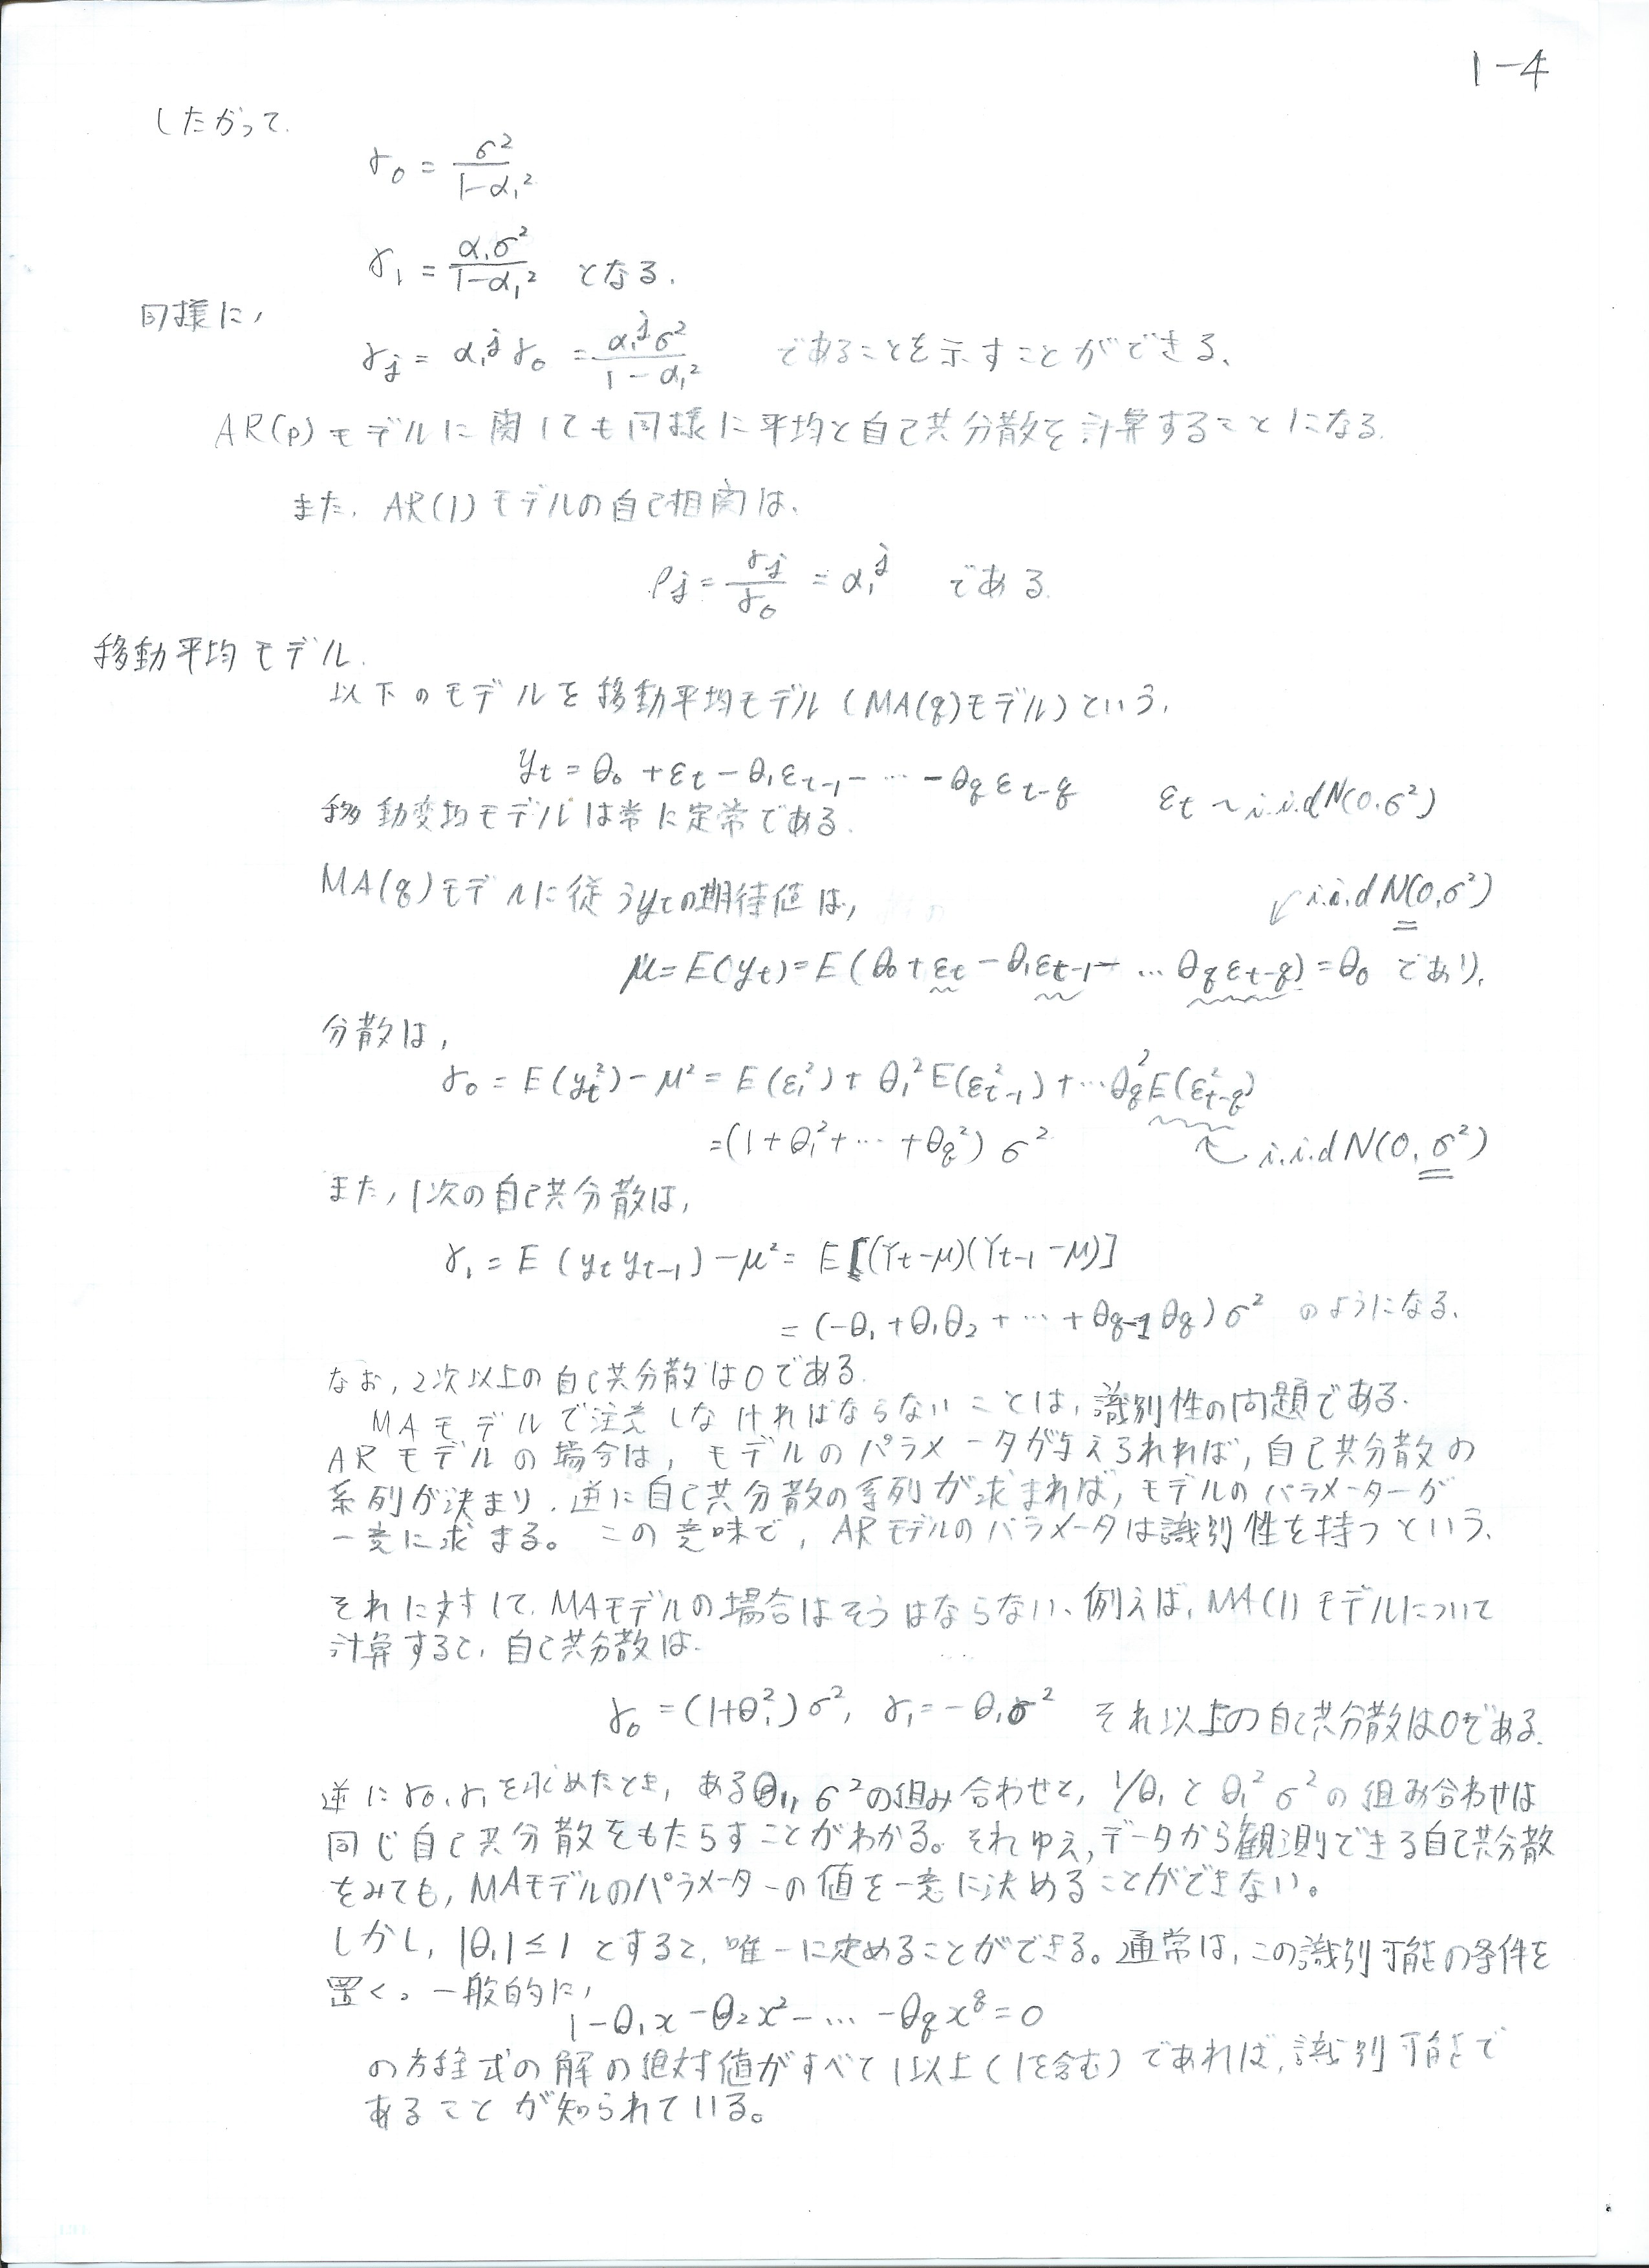 1-4
したがって.
γ₀ = σ²/(1-α₁²)
γ₁ = α₁σ²/(1-α₁²) となる.
同様に,
γⱼ = α₁ʲγ₀ = α₁ʲσ²/(1-α₁²) であることを示すことができる、
AR(p)モデルに関しても同様に平均と自己共分散を計算することになる.
また、AR(1)モデルの自己相関は、
ρⱼ = γⱼ/γ₀ = α₁ʲ である.
移動平均モデル.
以下のモデルを移動平均モデル(MA(q)モデル)という.
y_t = θ₀ + ε_t - θ₁ε_{t-1} - … - θ_q ε_{t-q} ε_t ~ i.i.d N(0.σ²)
移動変均モデルは常に定常である.
MA(q)モデルに従うy_tの期待値は,
↙ i.i.d N(0,σ²)
μ = E(y_t) = E(θ₀ + ε_t - θ₁ε_{t-1} - … θ_q ε_{t-q}) = θ₀ であり、
分散は,
γ₀ = E(y_t²) - μ² = E(ε_t²) + θ₁²E(ε²_{t-1}) + … θ_q²E(ε²_{t-q})
= (1 + θ₁² + … + θ_q²) σ² i.i.d N(0, σ²)
また, 1次の自己共分散は,
γ₁ = E(y_t y_{t-1}) - μ² = E[(Y_t-μ)(Y_{t-1}-μ)]
= (-θ₁ + θ₁θ₂ + … + θ_{q-1}θ_q) σ² のようになる.
なお, 2次以上の自己共分散は0である.
MAモデルで注意しなければならないことは, 識別性の問題である.
ARモデルの場合は, モデルのパラメータが与えられれば, 自己共分散の
系列が決まり. 逆に自己共分散の系列が求まれば, モデルのパラメーターが
一意に求まる。この意味で, ARモデルのパラメータは識別性を持つという、
それに対して、MAモデルの場合はそうはならない、例えば, MA(1)モデルについて
計算すると, 自己共分散は.
γ₀ = (1+θ₁²)σ², γ₁ = -θ₁σ² それ以上の自己共分散は0である.
逆にγ₀, γ₁を求めたとき, あるθ₁, σ²の組み合わせと, 1/θ₁とθ₁²σ²の組み合わせは
同じ自己共分散をもたらすことがわかる。それゆえ, データから観測できる自己共分散
をみても, MAモデルのパラメーターの値を一意に決めることができない。
しかし, |θ₁| ≤ 1 とすると, 唯一に定めることができる。通常は, この識別可能の条件を
置く。一般的に,
1 - θ₁x - θ₂x² - … - θ_q x^q = 0
の方程式の解の絶対値がすべて1以上(1を含む)であれば, 識別可能で
あることが知られている。